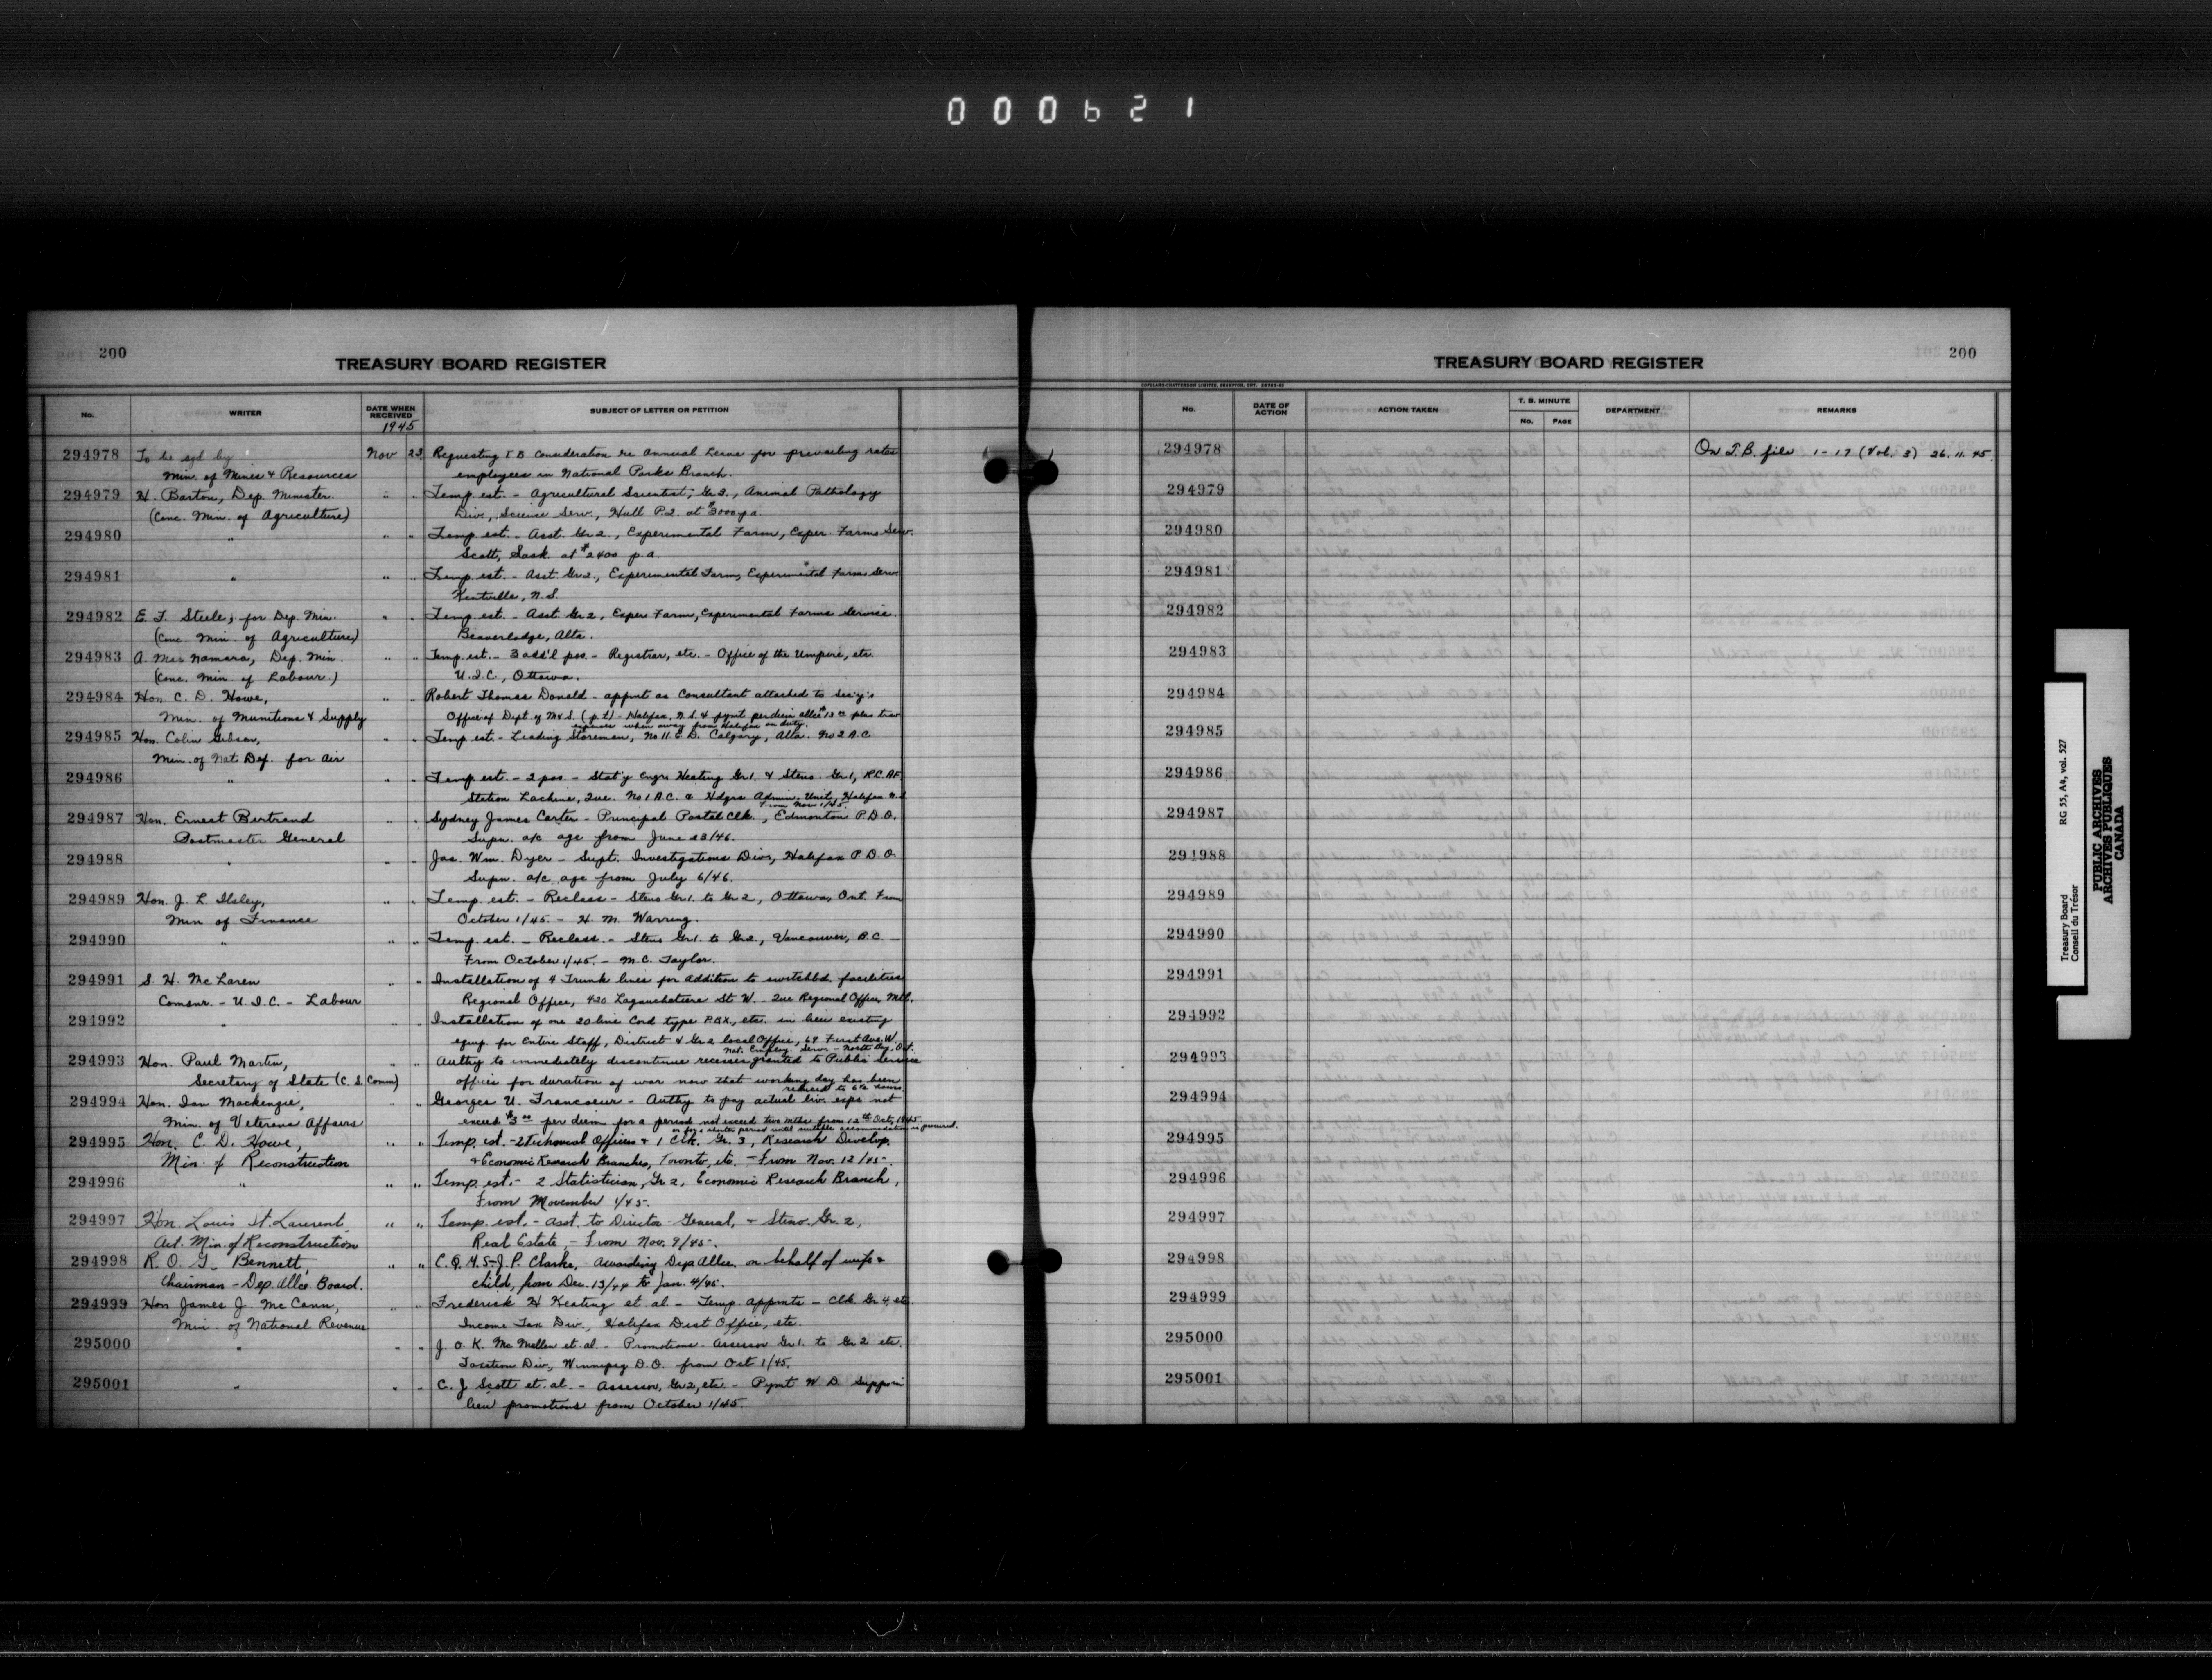 000621
200
TREASURY BOARD REGISTER
No. WRITER DATE WHEN RECEIVED SUBJECT OF LETTER OR PETITION
1945
294978 To be sgd by Nov 23 Requesting T B Consideration re Annual Leave for prevailing rates
Min. of Mines & Resources employees in National Parks Branch.
294979 H. Barton, Dep. Minister. " " Temp. est. - Agricultural Scientist, Gr. 3., Animal Pathology
(Conc. Min. of Agriculture) Div., Science Serv., Hull P.Q. at $3000 p.a.
294980 " " " Temp. est. - Asst. Gr. 2., Experimental Farm, Exper. Farms Serv.
Scott, Sask. at $2400 p.a.
294981 " " " Temp. est. - Asst. Gr. 2., Experimental Farm, Experimental Farms Serv.
Kentville, N.S.
294982 E. F. Steele, for Dep. Min. " " Temp. est. - Asst Gr 2, Exper Farm, Experimental Farms Service.
(Conc. Min. of Agriculture) Beaverlodge, Alta.
294983 A. MacNamara, Dep. Min. " " Temp. est. - 3 add'l pos. - Registrar, etc. - Office of the Umpire, etc.
(Conc. Min. of Labour.) U.I.C., Ottawa.
294984 Hon. C. D. Howe, " " Robert Thomas Donald - appmt as Consultant attached to Sec'y's
Min. of Munitions & Supply Office of Dept. of M & S. (p.t.) - Halifax, N.S. & pymt per diem allce $13.00 plus trav
expenses when away from Halifax on duty.
294985 Hon. Colin Gibson, " " Temp est - Leading Storeman, No 11 E.D. Calgary, Alta. No 2 A.C
Min. of Nat Def. for Air
294986 " " " Temp est. - 2 pos. - Stat'y Engr. Heating Gr. 1. & Steno. Gr. 1, R.C.A.F.
Station Lachine, Que. No 1 A.C. & Hdqrs Admin. Unit, Halifax N.S.
From Nov 1/45.
294987 Hon. Ernest Bertrand " " Sydney James Carter - Principal Postal Clk., Edmonton P.D.O.
Postmaster General Supn. a/c age from June 23/46.
294988 " " " Jas. Wm. Dyer - Supt. Investigations Div., Halifax P.D.O.
Supn. a/c age from July 6/46.
294989 Hon. J. L. Ilsley, " " Temp. est. - Reclass - Steno Gr. 1. to Gr 2, Ottawa, Ont. From
Min of Finance October 1/45. - H. M. Warring.
294990 " " " Temp. est. - Reclass. - Steno Gr. 1. to Gr. 2., Vancouver, B.C. -
From October 1/45. - M.C. Taylor.
294991 S. H. McLaren " " Installation of 4 Trunk lines for addition to switchbd. facilities
Comsnr. - U.I.C. - Labour Regional Office, 420 Lagauchetiere St. W. - Que Regional Office, Mtl.
294992 " " " Installation of one 20 line Cord type P.B.X., etc. in lieu existing
equip. for Entire Staff, District & Gr 2 local Office, 69 First Ave. W.
Nat. Employ. Serv. - North Bay, Ont.
294993 Hon. Paul Martin, " " Authy to immediately discontinue recesses granted to Public Service
Secretary of State (C. S. Comm) offices for duration of war now that working day has been
reduced to 6½ hours.
294994 Hon. Ian Mackenzie, " " Georges U. Francoeur - Authy to pay actual liv. exps not
Min. of Veterans Affairs exceed $3.00 per diem for a period not exceed two mths from 13th Oct, 1945
or for a shorter period until suitable accommodation is procured.
294995 Hon. C. D. Howe, " " Temp. est. - 2 Technical Officers & 1 Clk. Gr. 3, Research Develop.
Min. of Reconstruction & Economic Research Branches, Toronto, etc. - From Nov. 12/45.
294996 " " " Temp. est. - 2 Statistician, Gr 2, Economic Research Branch,
From November 1/45.
294997 Hon. Louis St. Laurent, " " Temp. est. - Asst. to Director General, & Steno. Gr. 2,
Act. Min. of Reconstruction Real Estate, - From Nov. 9/45.
294998 R. O. G. Bennett, " " C.Q.M.S. J. P. Clarke, - Awarding Dep. Allce. on behalf of wife &
Chairman - Dep. Allce. Board. child, from Dec. 13/44 to Jan. 4/45.
294999 Hon James J. McCann, " " Frederick H Keating et. al - Temp. appmts - Clk. Gr 4, etc.
Min. of National Revenue Income Tax Div., Halifax Dist Office, etc.
295000 " " " J. O. K. McMellen et. al. - Promotions - Assessor Gr 1. to Gr 2 etc.
Taxation Div., Winnipeg D.O. from Oct 1/45.
295001 " " " C. J. Scott et. al. - Assessor, Gr 2, etc. - Pymt W.D. Supp in
lieu promotions from October 1/45.
200
TREASURY BOARD REGISTER
COPELAND-CHATTERSON LIMITED, BRAMPTON, ONT.
No. DATE OF ACTION ACTION TAKEN T. B. MINUTE No. PAGE DEPARTMENT REMARKS
294978 On T.B. file 1-17 (Vol. 3) 26.11.45.
294979
294980
294981
294982
294983
294984
294985
294986
294987
294988
294989
294990
294991
294992
294993
294994
294995
294996
294997
294998
294999
295000
295001
Treasury Board RG 55, A4, vol. 527
Conseil du Trésor
PUBLIC ARCHIVES
ARCHIVES PUBLIQUES
CANADA